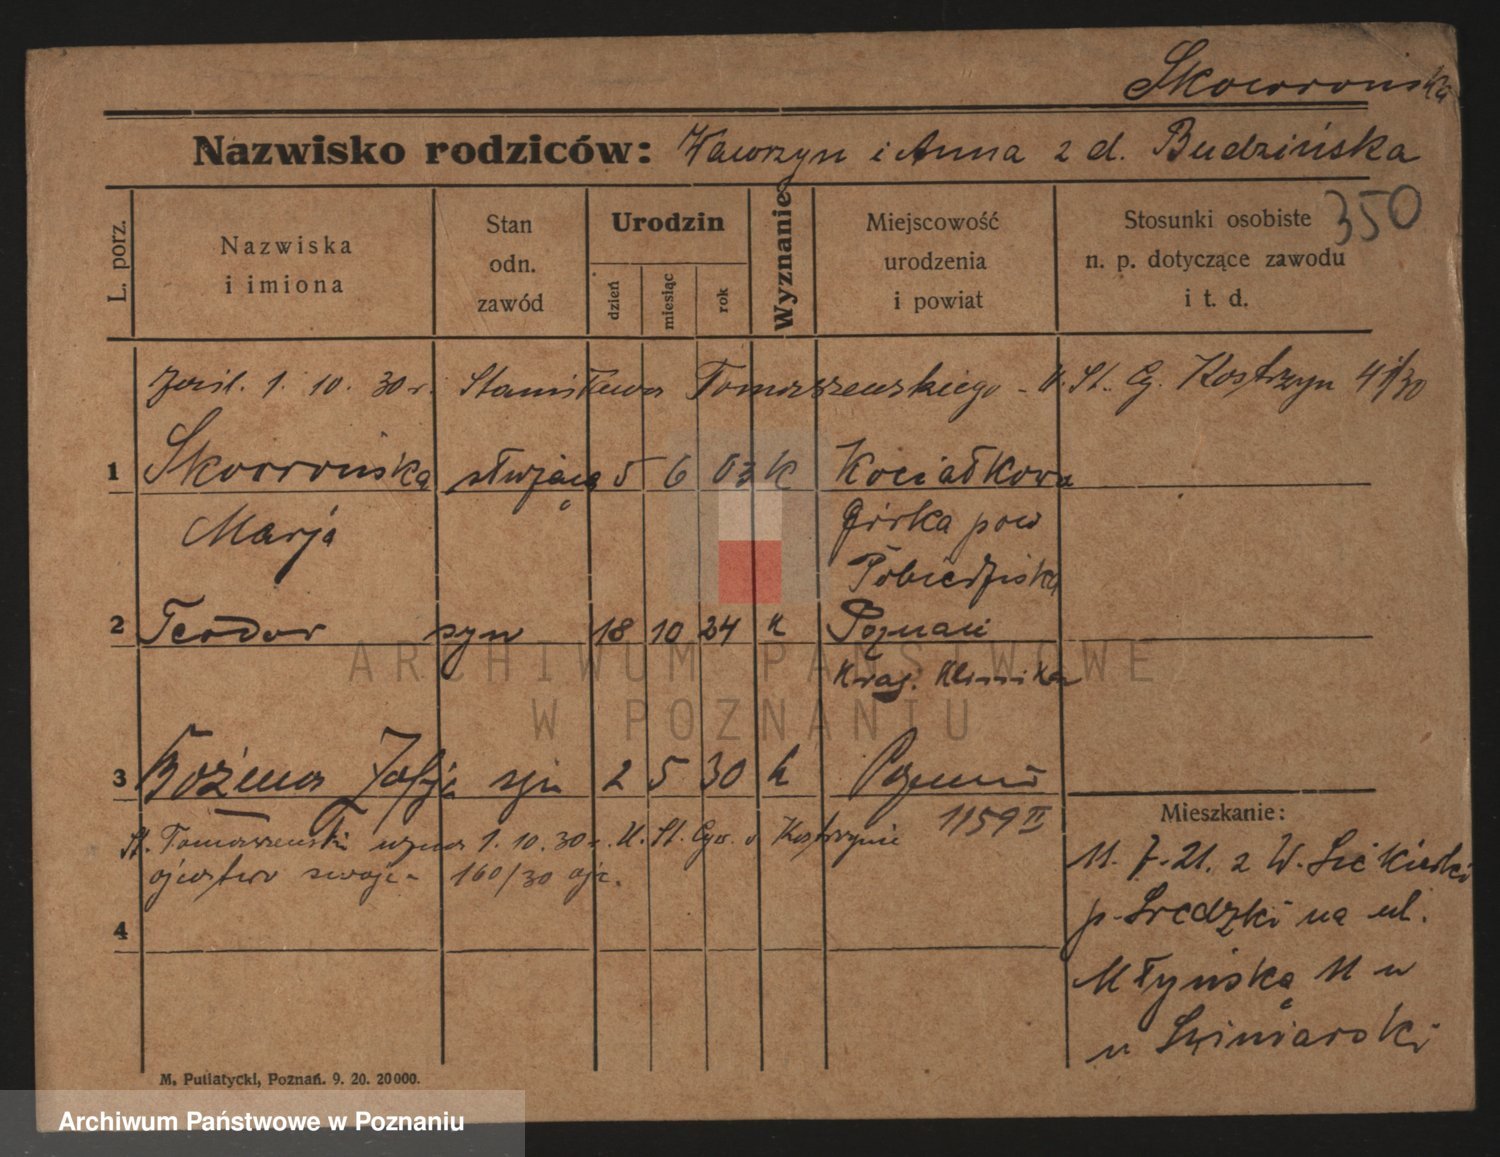 Skowrońska
Nazwisko rodziców: Wawrzyn i Anna z d. Budzińska
L. porz.
Nazwiska
i imiona
Stan
odn.
zawód
Urodzin
dzień
miesiąc
rok
Wyznanie
Miejscowość
urodzenia
i powiat
Stosunki osobiste
n. p. dotyczące zawodu
i t. d.
350
1. 10. 30 r. Stanisława Tomaszewskiego - U. St. Cy. Kostrzyn
1 Skowrońska służąca 5 6 03 k Kociałkowa
Marja Górka pow
Pobiedziska
2 Teodor syn 18 10 24 k Poznań
Krag. Klinika
3 Bożena Zofja 2 5 30 k Poznań
1159 II
St. Tomaszewski uznał 1. 10. 30 r. U. St. Cyw. w Kostrzynie
ojcostwo swoje - 160/30
4
Mieszkanie:
11. 7. 21. z W. Siekierki
p. Średzki na ul.
Młyńską 11 w
u Świniarski
M. Putiatycki, Poznań. 9. 20. 20000.
ARCHIWUM PAŃSTWOWE
W POZNANIU
Archiwum Państwowe w Poznaniu